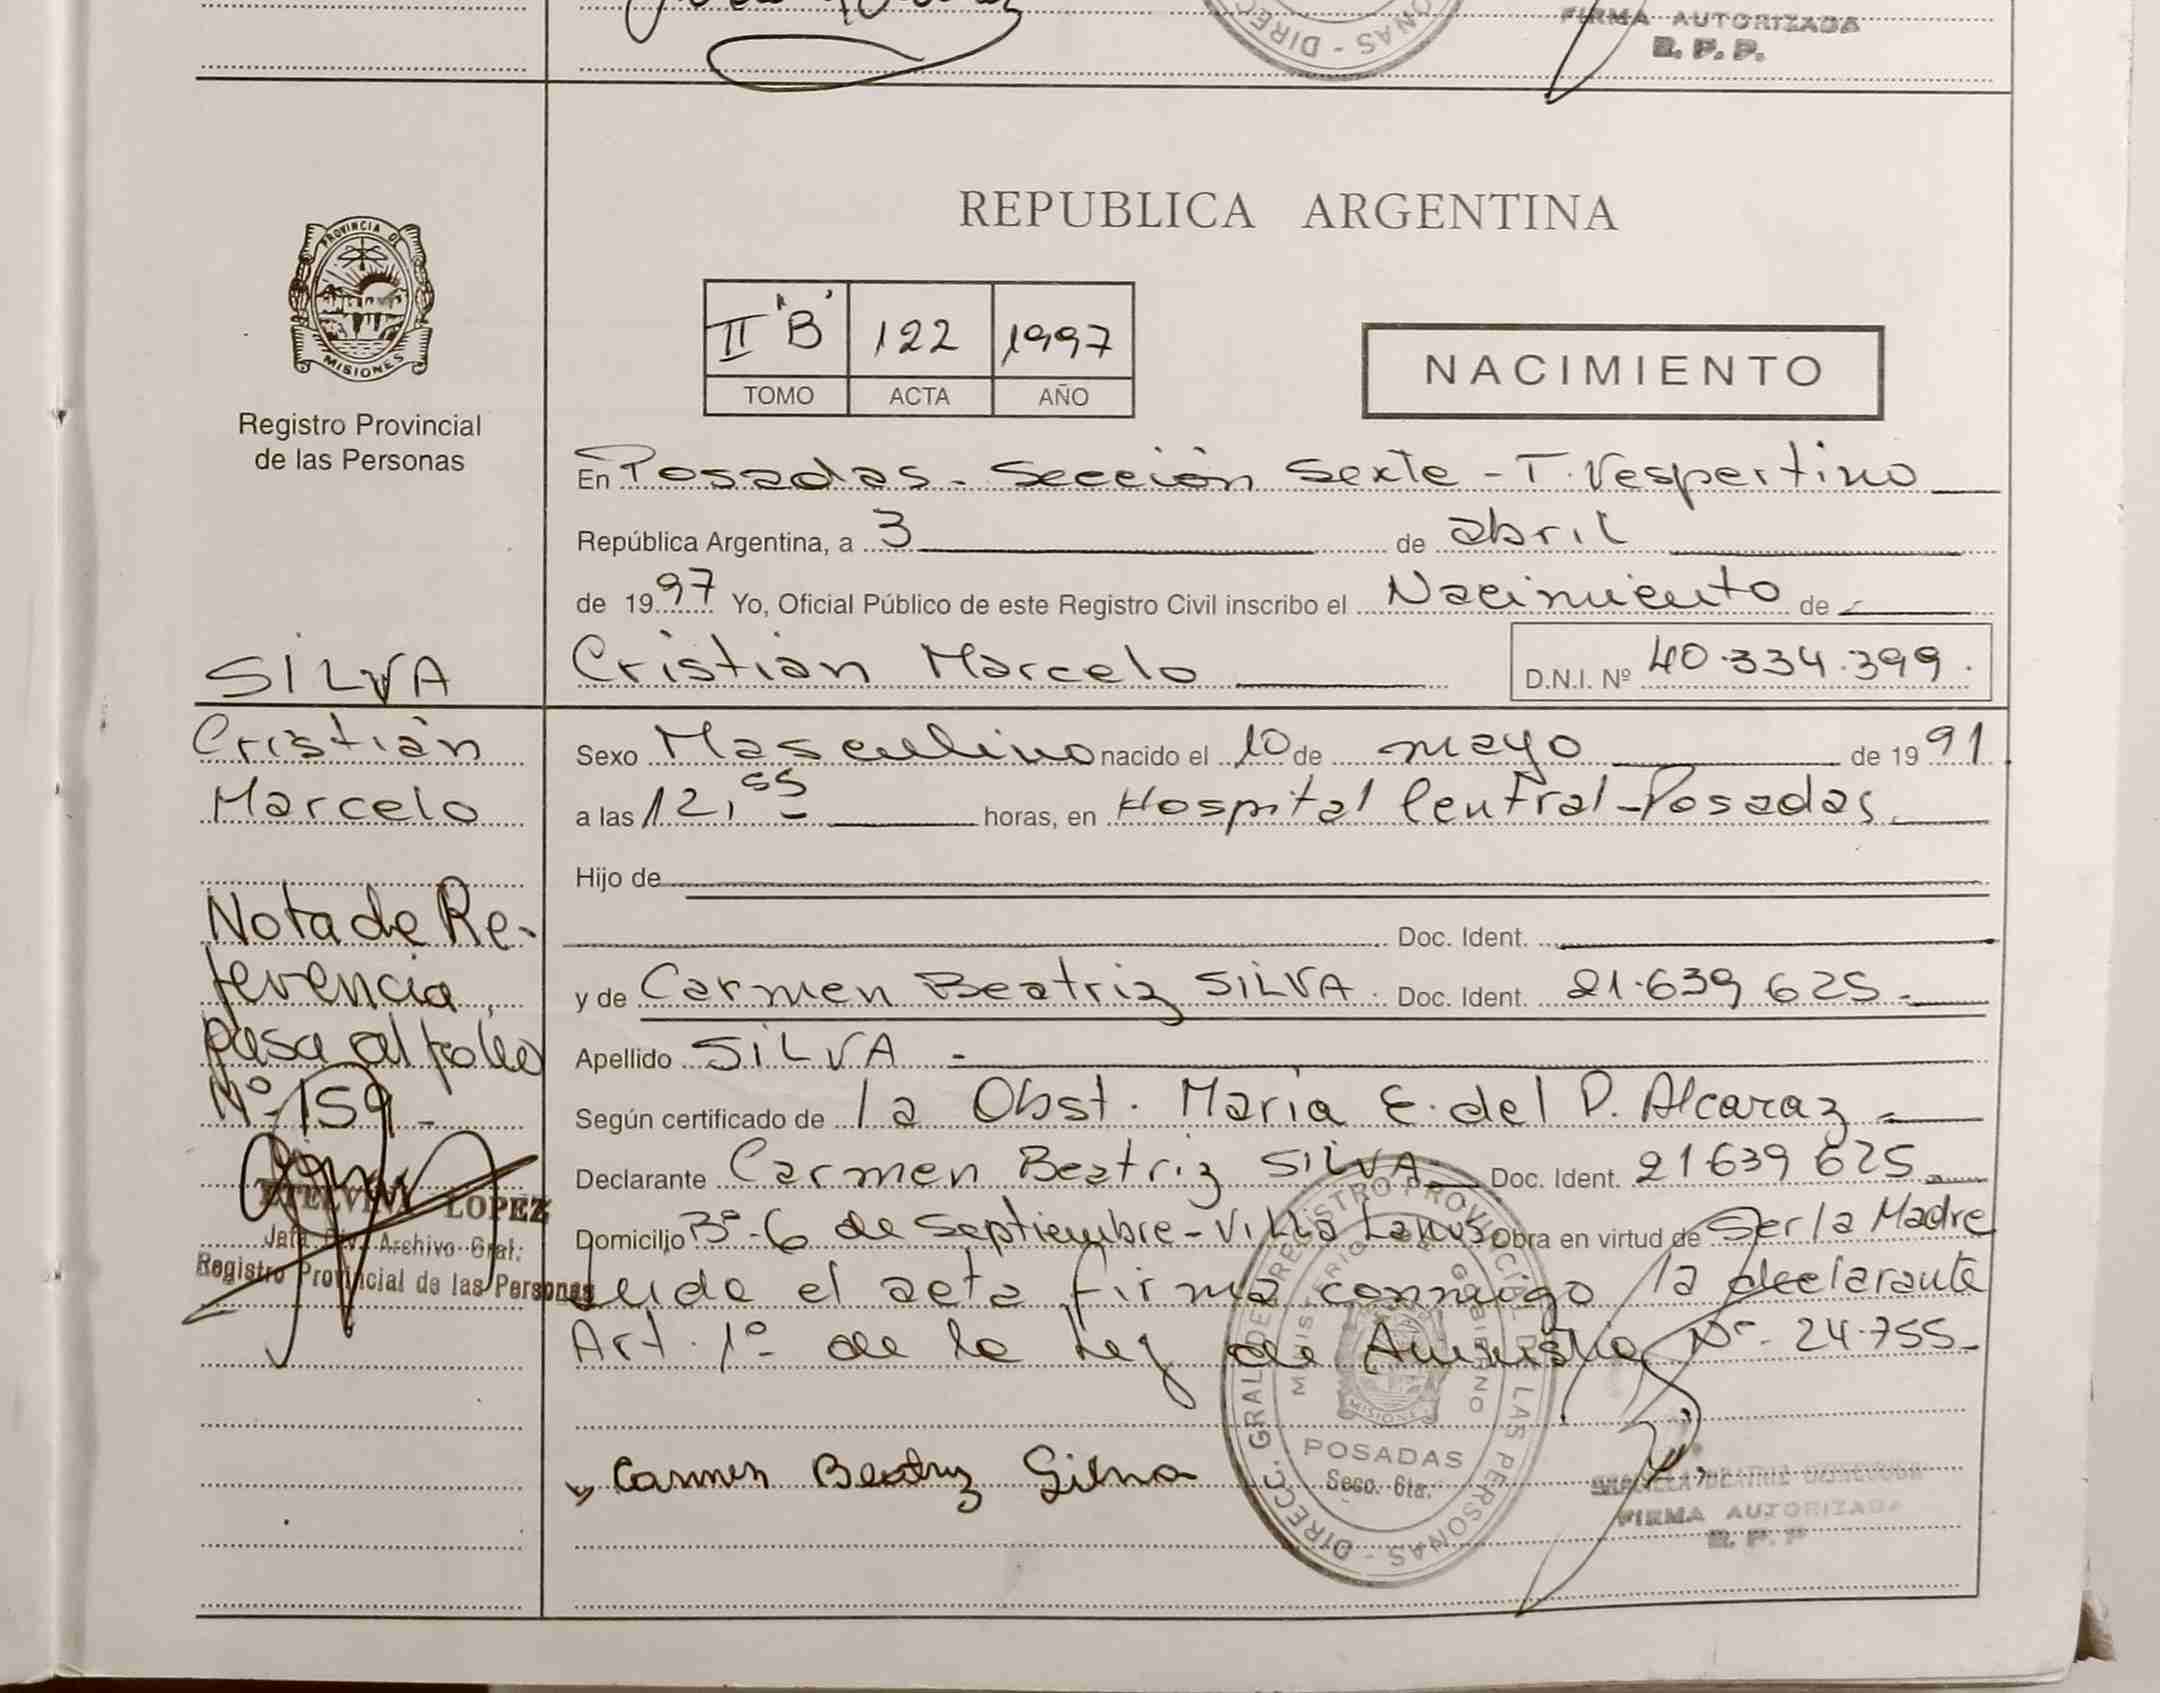 FIRMA AUTORIZADA
R. P. P.
PROVINCIA DE
MISIONES
Registro Provincial
de las Personas
REPUBLICA ARGENTINA
II "B" 122 1997
TOMO ACTA AÑO
NACIMIENTO
En Posadas - Sección Sexta - T. Vespertino
República Argentina, a 3 de abril
de 1997 Yo, Oficial Público de este Registro Civil inscribo el Nacimiento de
Cristian Marcelo D.N.I. Nº 40.334.399.
SILVA
Cristian
Marcelo
Nota de Re-
ferencia
pasa al folio
Nº 159 -
ETELVINA LOPEZ
Jefa Div. Archivo Gral.
Registro Provincial de las Personas
Sexo Masculino nacido el 10 de mayo de 1991
a las 12,55 horas, en Hospital Central - Posadas.
Hijo de
Doc. Ident.
y de Carmen Beatriz SILVA. Doc. Ident. 21.639 625.-
Apellido SILVA -
Según certificado de la Obst. María E. del P. Alcaraz -
Declarante Carmen Beatriz SILVA- Doc. Ident. 21639 625
Domicilio Bº-6 de Septiembre - Villa Lanus Obra en virtud de Ser la Madre
Leida el acta firma conmigo la declarante
Art. 1º de la Ley de Amnistia Nº- 24.755-
Carmen Beatriz Silva
DIRECC. GRAL DE REGISTRO PROVINCIAL DE LAS PERSONAS
MINISTERIO DE GOBIERNO
MISIONES
POSADAS
Secc. 6ta.
FIRMA AUTORIZADA
R. P. P